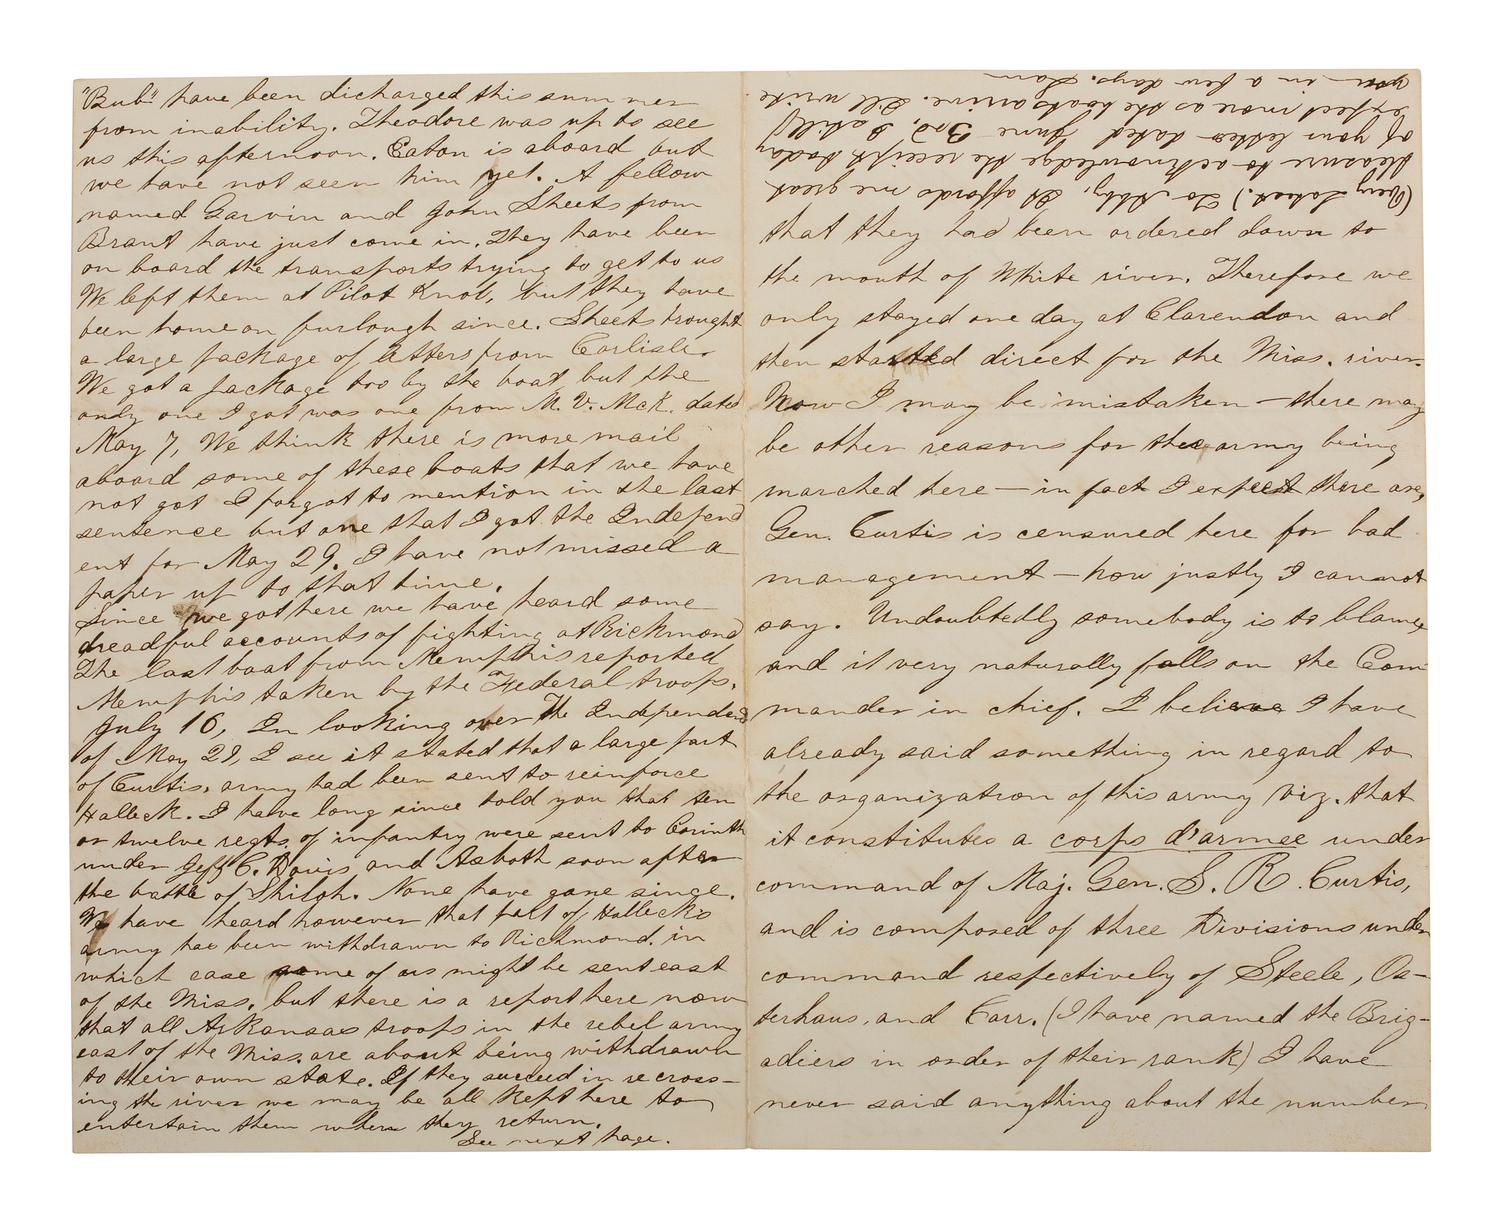 "Bub" have been dicharged this summer
from inability. Theodore was up to see
us this afternoon. Eaton is aboard but
we have not seen him yet. A fellow
named Garvin and John Sheets from
Brant have just come in. They have been
on board the transports trying to get to us
We left them at Pilot Knob, but they have
been home on furlough since. Sheets brought
a large package of letters from Carlisle.
We got a package too by the boat, but the
only one I got was one from M. V. McK. dated
May 7, We think there is more mail
aboard some of these boats that we have
not got I forgot to mention in the last
sentence but one that I got the Independ
ent for May 29. I have not missed a
paper up to that time.
Since we got here we have heard some
dreadful accounts of fighting at Richmond
The last boat from Memphis reported
Memphis taken by the Federal troops.
July 16, In looking over the Independent
of May 29, I see it stated that a large part
of Curtis, army had been sent to reinforce
Halleck. I have long since told you that ten
or twelve regts. of infantry were sent to Corinth
under Jeff C. Davis and Asboth soon after
the battle of Shiloh. None have gone singe.
We have heard however that part of Halleck's
army has been withdrawn to Richmond. in
which case some of us might be sent east
of the Miss, but there is a report here now
that all Arkansas troops in the rebel army
east of the Miss. are about being withdrawn
to their own state. If they succeed in recross-
ing the river we may be all kept here to
entertain them when they return.
See next page.
(Very Latest.) To Abby, It affords me great
pleasure to acknowledge the receipt today
of your letter dated June 3rd, I shall
expect more as the boats arrive. I'll write
you in a few days. Sam
that they had been ordered down to
the mouth of White river. Therefore we
only stayed one day at Clarendon and
then started direct for the Miss. river.
Now I may be mistaken — there may
be other reasons for the army being
marched here — in fact I expect there are,
Gen. Curtis is censured here for bad
management — how justly I cannot
say. Undoubtedly somebody is to blame
and it very naturally falls on the Com
mander in chief. I believe I have
already said something in regard to
the organization of this army viz. that
it constitutes a corps d'armee under
command of Maj. Gen. S. R. Curtis,
and is composed of three Divisions under
command respectively of Steele, Os-
terhaus, and Carr. (I have named the Brig-
adiers in order of their rank) I have
never said anything about the number